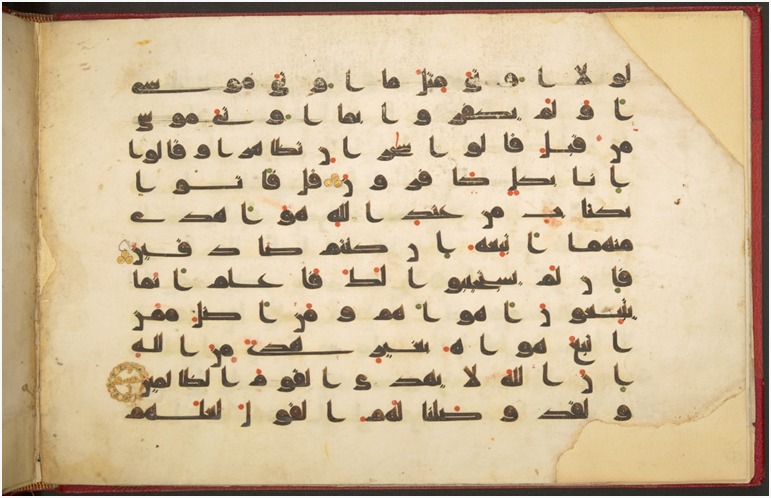 لولا اوتي مثل ما اوتي موسى
اولم يكفروا بما اوتي موسى
من قبل قالوا سحران تظاهرا وقالوا
انا بكل كافرون قل فاتوا
بكتاب من عند الله هو اهدى
منهما اتبعه ان كنتم صادقين
فان لم يستجيبوا لك فاعلم انما
يتبعون اهواهم ومن اضل ممن
اتبع هواه بغير هدى من الله
ان الله لا يهدي القوم الظالمين
ولقد وصلنا لهم القول لعلهم